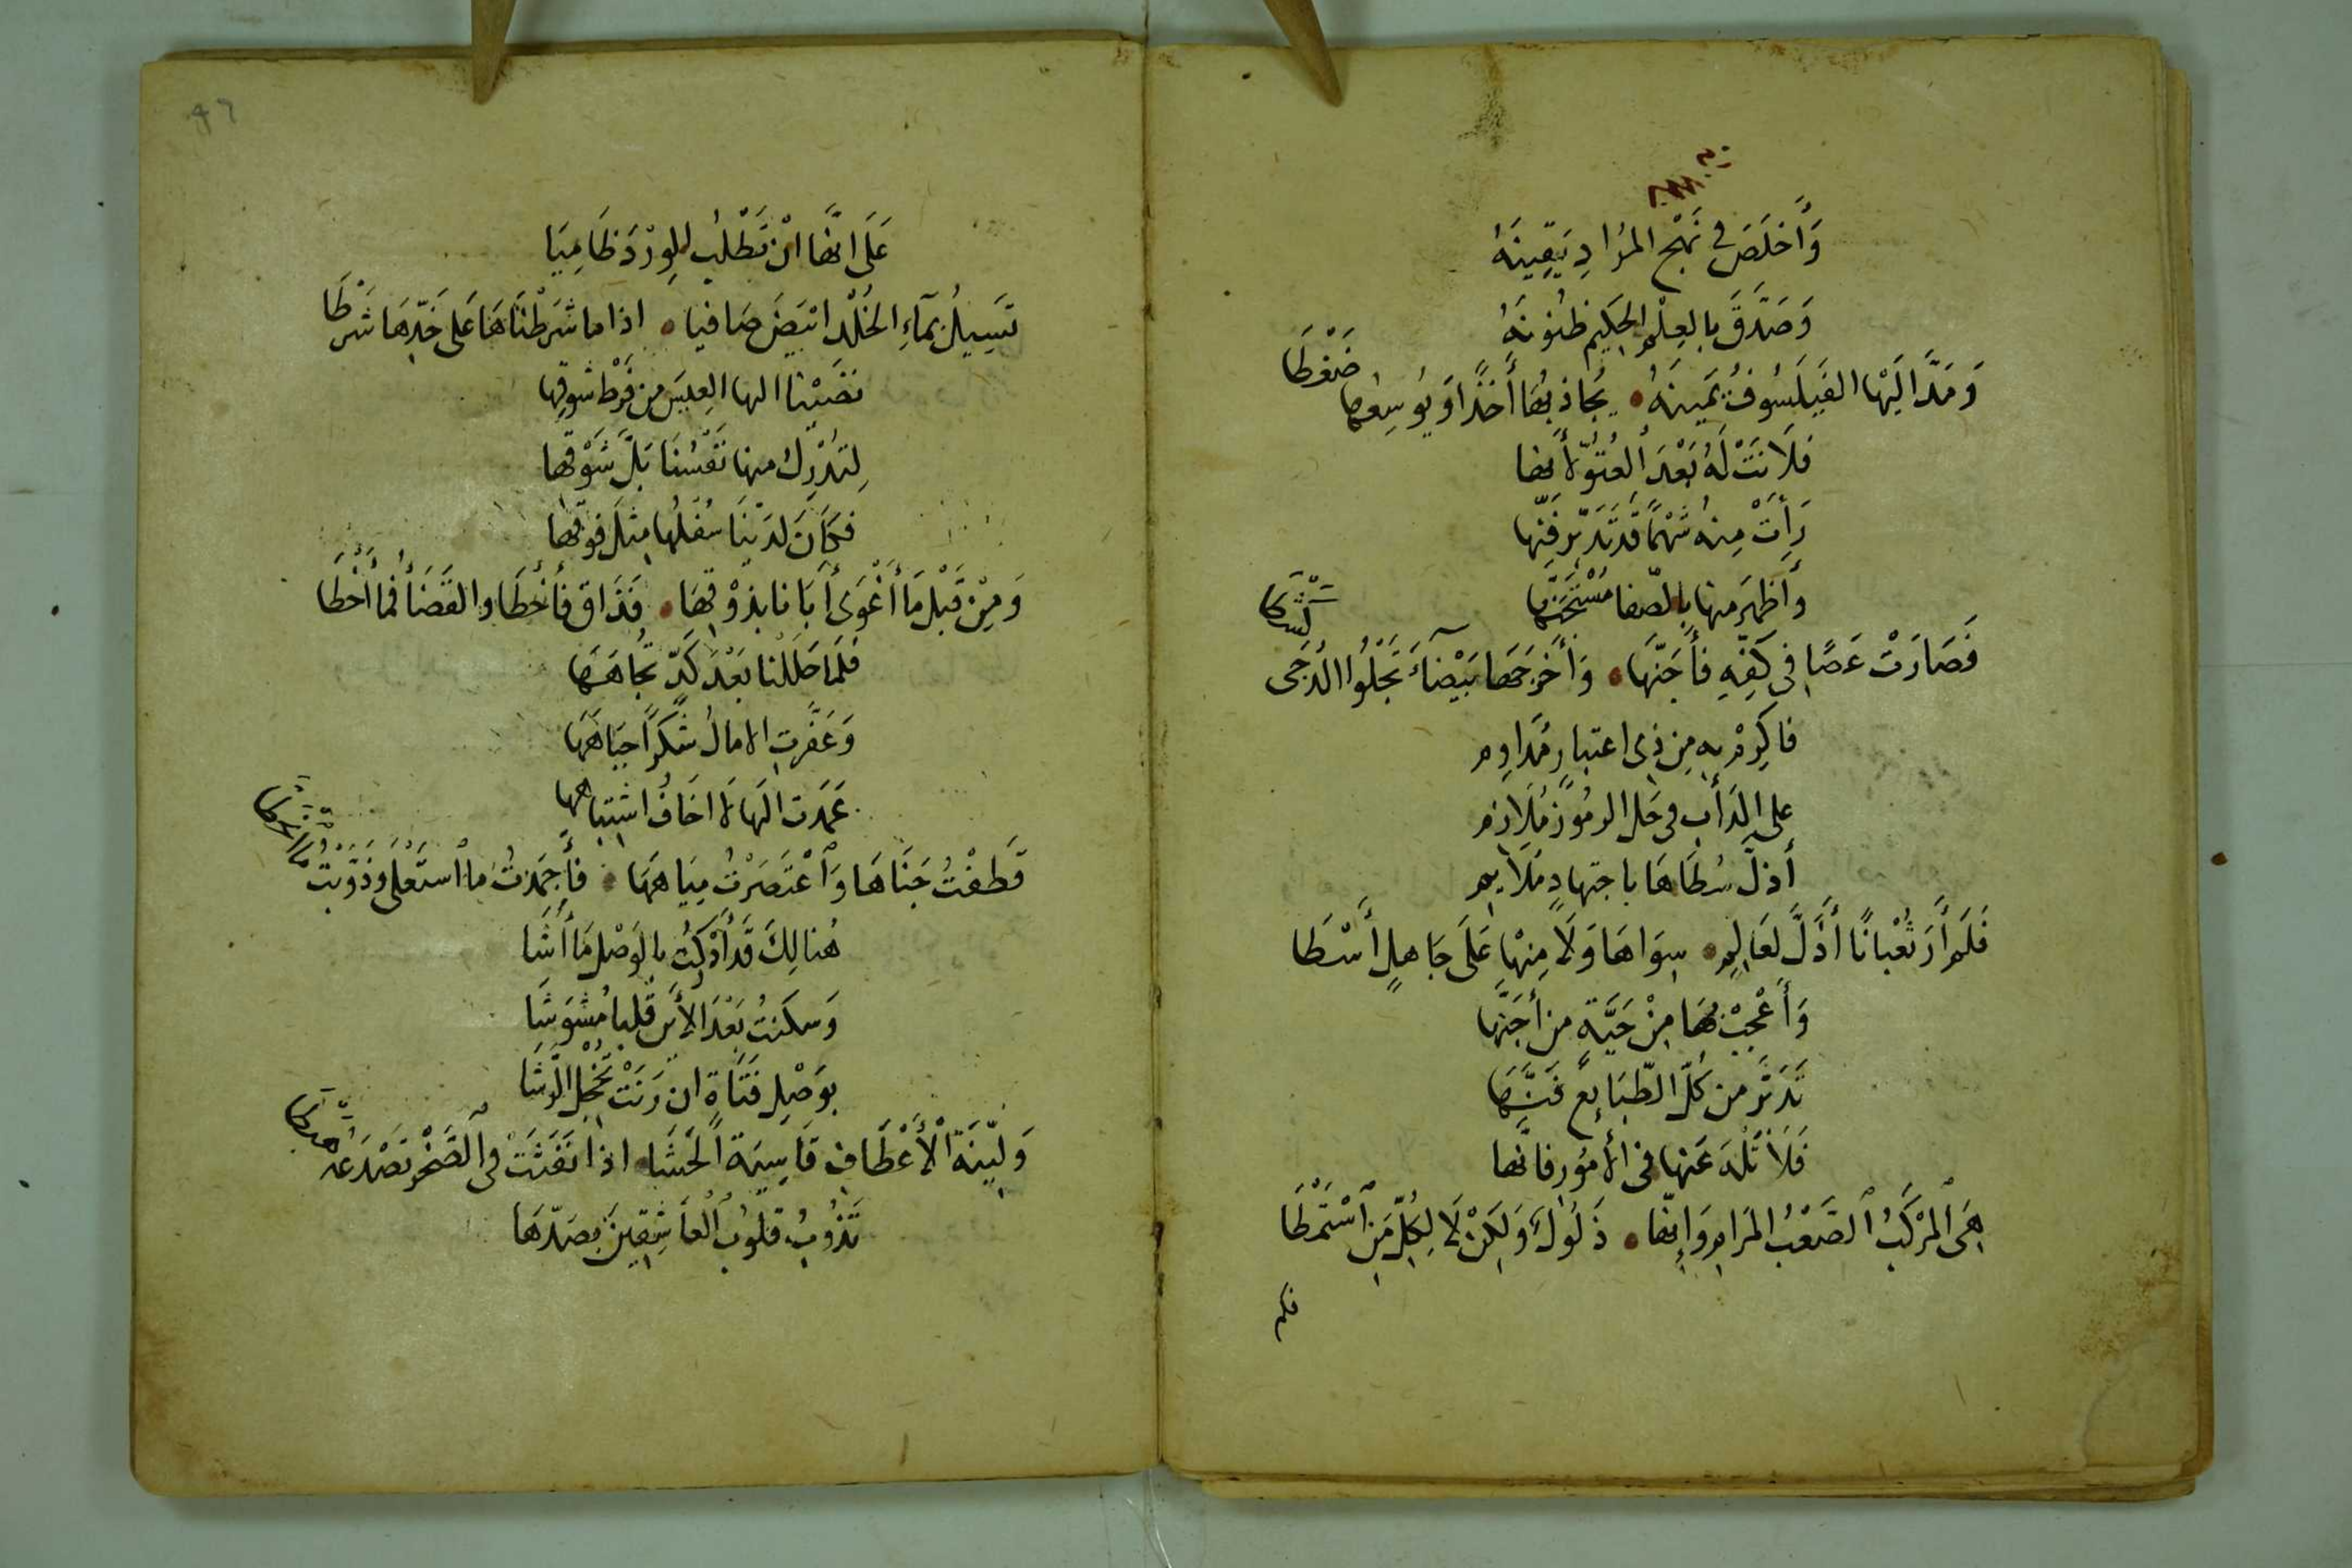 وَأَخلَصَ في نَهْجِ المُرادِ يَقِينَهُ
وَصَدَّقَ بالعِلْمِ الحَكِيم ظنُونَهُ
وَمَدَّ اليَهْا الفَيلَسُوفُ يَمينَهُ ۰ يُجَاذبُهَا أخَذًا وَيُوسِعُها ضَغْطَا
فَلَانَتْ لَهُ بَعْدَ العُتُوِّ لأنها
رَأَتْ مِنهُ شَهْمًا قَد تَدَبَّر فَنّها
وأظهَر منها بالصّفا مُسْتَجَنَّها
فَصَارَتْ عَصًا في كَفِّهِ فأجَنّهَا ۰ وَأخرَجَها بَيْضآءَ تَجْلُوا الدُجَى كَشْطَا
فاكرِمْ بهِ مِن ذِى اعتبارٍ مُداومِ
على الدَأبِ فى حَل الرمُوزِ مُلَازمِ
أذلّ سُطَاهَا باجتهادٍ مُلَايمِ
فَلَم أرَ ثُعْبانًا أذَلَّ لعَالِمٍ ۰ سِوَاهَا وَلَا مِنْهَا عَلَى جَاهلٍ أسْطَا
وَأَعْجِبْ بهَا مِنْ حَيَّةٍ من أجَنّها
تَدَبَّر من كُلّ الطّبَايعِ فَنَّهَا
فَلَا تَلْهَ عَنها في الأمُور فانّها
هِىَ المرْكَبُ الصَعْبُ المَرامِ وَإنّها ۰ ذَلُولٌ وَلكِنْ لَا لِكُلِّ مَنِ اسْتَمْطَا
فلم
٩٦
عَلَى انّها انْ تَطْلُب الوِرْدَ ظَامِيَا
تَسِيلُ بمَآءِ الخُلْد ابْيَضَ صَافيا ۰ اذا ما شَرَطْنَاهَا عَلى خَدّهَا شَرْطَا
نضَيْنا اليها العِيسَ من فَرْط شوقِها
لِتدْرك منها نَفْسُنَا بَلَّ شَوْقها
فكانَ لدَيْنَا سُفْلُها مِثلَ فوْقها
وَمِنْ قَبْلِ مَا أَغْوَى أَبَانا بذوْقهَا ۰ فَذَاقَ فأَخْطَا والقَضَأُ فما أَخْطَا
فَلَمَا حَلَلْنا بَعْدَ كَدٍّ تُجُاهَهَا
وَعَفَّرتِ الامالُ شكرًا جبَاهَهَا
عَمَدت اليَها لَا اخَافُ اشتِباهها
قَطَفْتُ جَنَاهَا وَاعْتَصَرْتُ مِيَاهَهَا ۰ فأَجمَدتُ ما اسْتَعْلى وَذَوّبتُ
هُنالِكَ قَد أدْرَكتُ بالوَصْل مَا أَشَا
وَسكنتُ بَعْدَ الأَين قَلبا مُشوَّشَا
بوَصْلِ فَتَاةٍ ان رَنَتْ تُخْجِل الرَشَا
وَليّنَةُ الأَعْطَافِ قَاسِيَة الحَشَا ۰ اذا نَفَثتْ فى الصَخْر تصْدَعُه
تَذُوبُ قلوُبُ العَاشِقِينَ بصَدّهَا